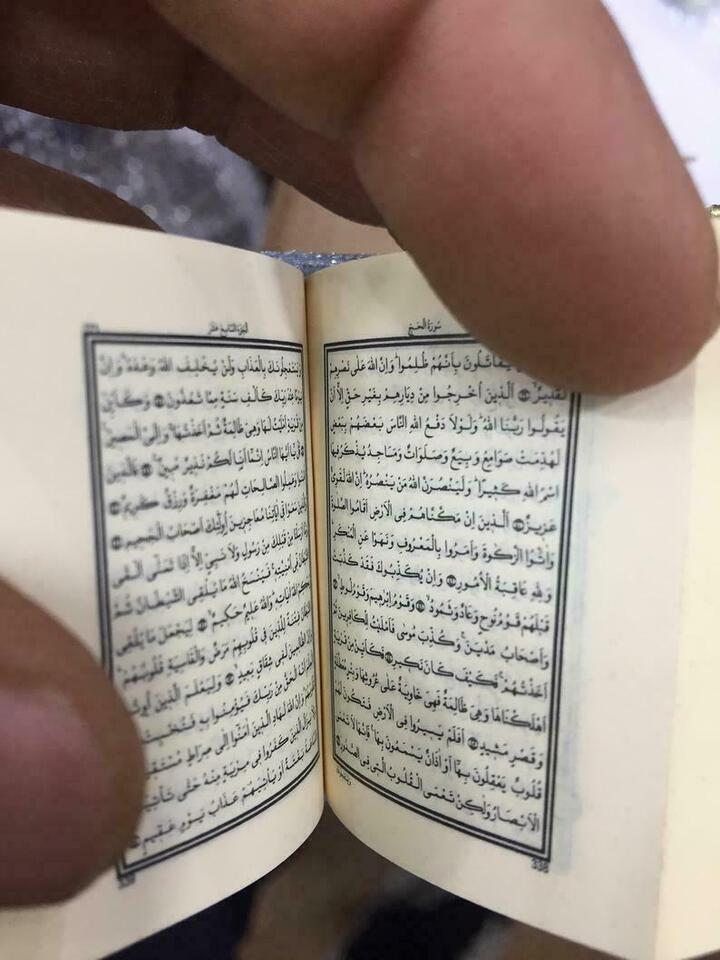 سُورَةُ الْحَجِّ
يُقَاتَلُونَ بِأَنَّهُمْ ظُلِمُوا وَإِنَّ اللّٰهَ عَلَى نَصْرِهِمْ
لَقَدِيرٌ ۝ اَلَّذِينَ اُخْرِجُوا مِنْ دِيَارِهِمْ بِغَيْرِ حَقٍّ اِلَّا اَنْ
يَقُولُوا رَبُّنَا اللّٰهُ وَلَوْلَا دَفْعُ اللّٰهِ النَّاسَ بَعْضَهُمْ بِبَعْضٍ
لَهُدِّمَتْ صَوَامِعُ وَبِيَعٌ وَصَلَوَاتٌ وَمَسَاجِدُ يُذْكَرُ فِيهَا
اسْمُ اللّٰهِ كَثِيرًا وَلَيَنْصُرَنَّ اللّٰهُ مَنْ يَنْصُرُهُ اِنَّ اللّٰهَ لَقَوِيٌّ
عَزِيزٌ ۝ اَلَّذِينَ اِنْ مَكَّنَّاهُمْ فِى الْاَرْضِ اَقَامُوا الصَّلٰوةَ
وَاٰتَوُا الزَّكٰوةَ وَاَمَرُوا بِالْمَعْرُوفِ وَنَهَوْا عَنِ الْمُنْكَرِ
وَلِلّٰهِ عَاقِبَةُ الْاُمُورِ ۝ وَاِنْ يُكَذِّبُوكَ فَقَدْ كَذَّبَتْ
قَبْلَهُمْ قَوْمُ نُوحٍ وَعَادٌ وَثَمُودُ ۝ وَقَوْمُ اِبْرٰهِيمَ وَقَوْمُ لُوطٍ ۝
وَاَصْحَابُ مَدْيَنَ وَكُذِّبَ مُوسَى فَاَمْلَيْتُ لِلْكَافِرِينَ ثُمَّ
اَخَذْتُهُمْ فَكَيْفَ كَانَ نَكِيرِ ۝ فَكَاَيِّنْ مِنْ قَرْيَةٍ
اَهْلَكْنَاهَا وَهِىَ ظَالِمَةٌ فَهِىَ خَاوِيَةٌ عَلَى عُرُوشِهَا وَبِئْرٍ مُعَطَّلَةٍ
وَقَصْرٍ مَشِيدٍ ۝ اَفَلَمْ يَسِيرُوا فِى الْاَرْضِ فَتَكُونَ لَهُمْ
قُلُوبٌ يَعْقِلُونَ بِهَا اَوْ اٰذَانٌ يَسْمَعُونَ بِهَا فَاِنَّهَا لَا تَعْمَى
الْاَبْصَارُ وَلٰكِنْ تَعْمَى الْقُلُوبُ الَّتِى فِى الصُّدُورِ ۝
اَلْجُزْءُ السَّابِعَ عَشَرَ
يَسْتَعْجِلُونَكَ بِالْعَذَابِ وَلَنْ يُخْلِفَ اللّٰهُ وَعْدَهُ وَاِنَّ
يَوْمًا عِنْدَ رَبِّكَ كَاَلْفِ سَنَةٍ مِمَّا تَعُدُّونَ ۝ وَكَاَيِّنْ
مِنْ قَرْيَةٍ اَمْلَيْتُ لَهَا وَهِىَ ظَالِمَةٌ ثُمَّ اَخَذْتُهَا وَاِلَىَّ الْمَصِيرُ ۝
يَا اَيُّهَا النَّاسُ اِنَّمَا اَنَا لَكُمْ نَذِيرٌ مُبِينٌ ۝ فَالَّذِينَ
اٰمَنُوا وَعَمِلُوا الصَّالِحَاتِ لَهُمْ مَغْفِرَةٌ وَرِزْقٌ كَرِيمٌ ۝
سَعَوْا فِى اٰيَاتِنَا مُعَاجِزِينَ اُولٰئِكَ اَصْحَابُ الْجَحِيمِ ۝
مِنْ قَبْلِكَ مِنْ رَسُولٍ وَلَا نَبِىٍّ اِلَّا اِذَا تَمَنَّى اَلْقَى
فِى اُمْنِيَّتِهِ فَيَنْسَخُ اللّٰهُ مَا يُلْقِى الشَّيْطَانُ ثُمَّ
اللّٰهُ اٰيَاتِهِ وَاللّٰهُ عَلِيمٌ حَكِيمٌ ۝ لِيَجْعَلَ مَا يُلْقِى
فِتْنَةً لِلَّذِينَ فِى قُلُوبِهِمْ مَرَضٌ وَالْقَاسِيَةِ قُلُوبُهُمْ
الظَّالِمِينَ لَفِى شِقَاقٍ بَعِيدٍ ۝ وَلِيَعْلَمَ الَّذِينَ اُوتُوا
اَنَّهُ الْحَقُّ مِنْ رَبِّكَ فَيُؤْمِنُوا بِهِ فَتُخْبِتَ
وَاِنَّ اللّٰهَ لَهَادِ الَّذِينَ اٰمَنُوا اِلَى صِرَاطٍ مُسْتَقِيمٍ
يَزَالُ الَّذِينَ كَفَرُوا فِى مِرْيَةٍ مِنْهُ حَتَّى تَأْتِيَهُمُ
بَغْتَةً اَوْ يَأْتِيَهُمْ عَذَابُ يَوْمٍ عَقِيمٍ ۝